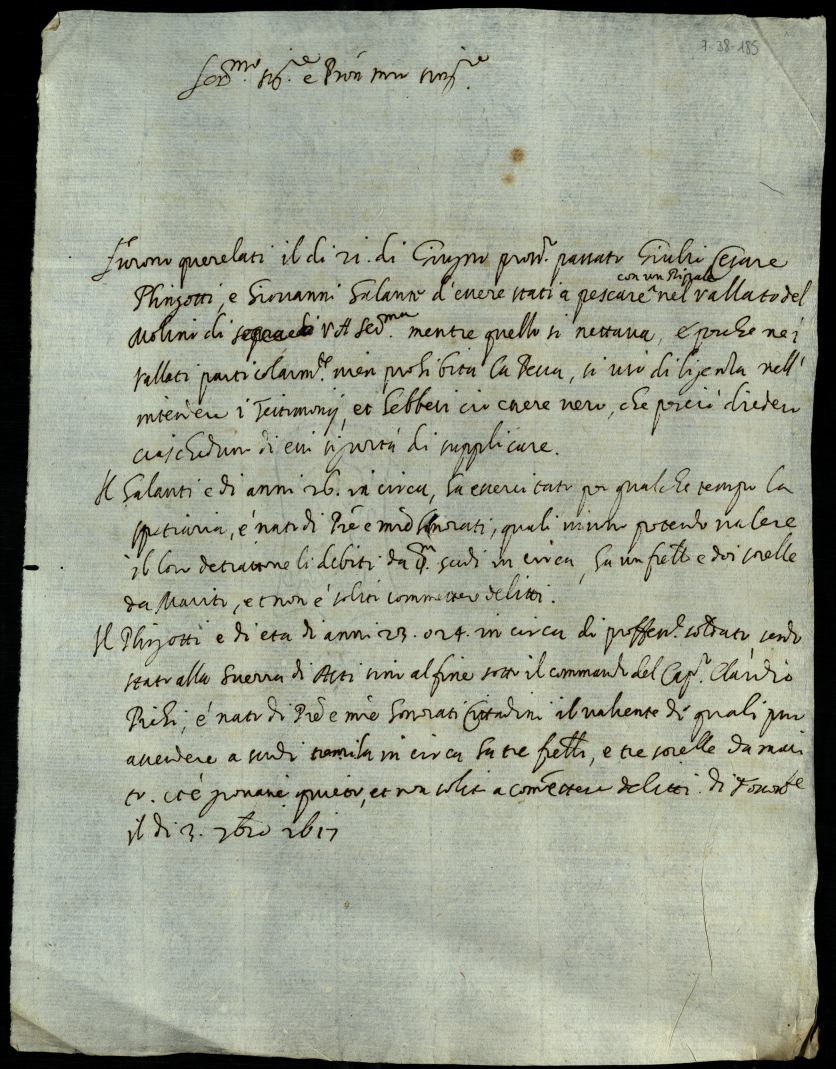 7-38-185
Ser.mo Sig.re e Pron mio
Furono querelati il di 21. di Giugno pross.o passato Giulio Cesare
con un
Plinzotti, e Giovanni Galante d'essere stati a pescare nel vallato del
Molino di V A Ser.ma mentre quello si nettava, e perche nei
vallati particolarm.te vien prohibita la Pesca, si usò diligenza nell'
intendere i Testimonij, et hebbesi ciò essere vero, che perciò diedero
ciaschedun di essi sigurtà di supplicare.
Il Galanti è di anni 26. in circa, ha esercitato per qualche tempo la
spetiaria, è nato di Pre e mre honorati, quali havere
il loro detrattone li debiti da scudi in circa, ha un frello e doi sorelle
da Marito, et non è solito commettere delitti.
Il Plinzotti è di età di anni 23. o 24. in circa di professe. soldato sendo
stato alla Guerra di Asti sino al fine sotto il commando del Cap.o Claudio
è nato di Pre e mre honorati Cittadini il valsente de quali può
ascendere a scudi tremila in circa ha tre frelli, e tre sorelle da mari
to. et è giovane quieto, et non solito a comettere delitti. di
il di 3. 7bre 1617